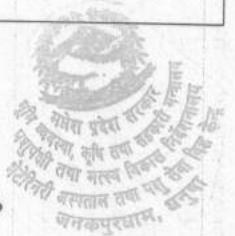 मधेश प्रदेश सरकार
भूमि व्यवस्था, कृषि तथा सहकारी मन्त्रालय
पशुपंछी तथा मत्स्य विकास निर्देशनालय
भेटेरिनरी अस्पताल तथा पशु सेवा विज्ञ केन्द्र
जनकपुरधाम, धनुषा